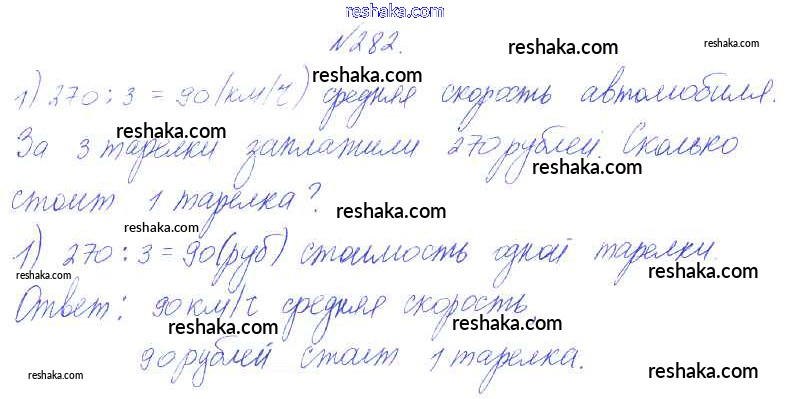 reshaka.com
№282.
reshaka.com reshaka.com
reshaka.com
1) 270 : 3 = 90 (км/ч) средняя скорость автомобиля.
reshaka.com reshaka.com
За 3 тарелки заплатили 270 рублей. Сколько
reshaka.com
стоит 1 тарелка?
reshaka.com reshaka.com
1) 270 : 3 = 90 (руб) стоимость одной тарелки.
reshaka.com reshaka.com
Ответ: 90 км/ч средняя скорость,
reshaka.com reshaka.com
90 рублей стоит 1 тарелка.
reshaka.com reshaka.com